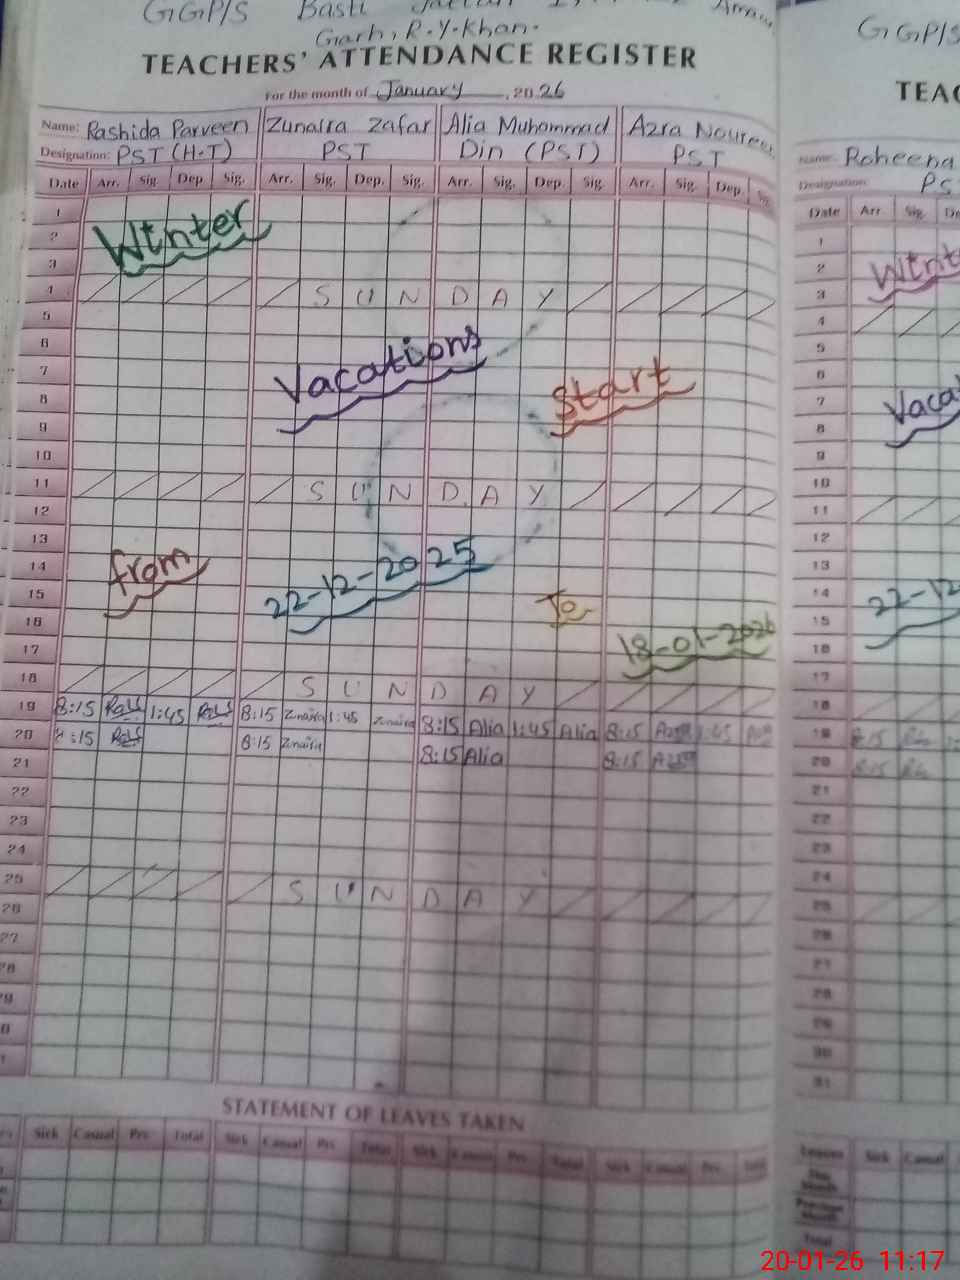 GGP/S Basti
Garh, R.Y.Khan.
TEACHERS' ATTENDANCE REGISTER
For the month of January, 2026
Name: Rashida Parveen Zunaira Zafar Alia Muhammad Azra Noureen
Designation: PST (H.T) PST Din (PST) PST
Date Arr. Sig. Dep Sig. Arr. Sig. Dep. Sig. Arr. Sig. Dep. Sig. Arr. Sig. Dep. Sig.
1
2 Winter
3
4 SUNDAY
5
6
7 Vacations Start
8
9
10
11 SUNDAY
12
13
14 from 22-12-2025
15 To
16
17 18-01-2026
18 SUNDAY
19 8:15 1:45 8:15 Zunaira 1:45 Zunaira 8:15 Alia 1:45 Alia 8:15 Azra 1:45
20 8:15 8:15 Zunaira 8:15 Alia 8:15 Azra
21
22
23
24
25 SUNDAY
26
27
28
29
STATEMENT OF LEAVES TAKEN
Sick Casual Prv. Total Sick Casual Prv. Total Sick Casual Prv. Total Sick Casual Prv. Total
GGP/S
TEAC
Name: Roheena
Designation: PS
Date Arr. Sig. De
1
2 Wint
3
4
5
6
7 Vaca
8
9
10
11
12
13
14 22-12
15
16
17
18
19 8:15
20 8:15
21
22
23
24
25
26
27
28
29
30
31
Leaves Sick Casual
This Month
Previous Month
Total
20-01-26 11:17